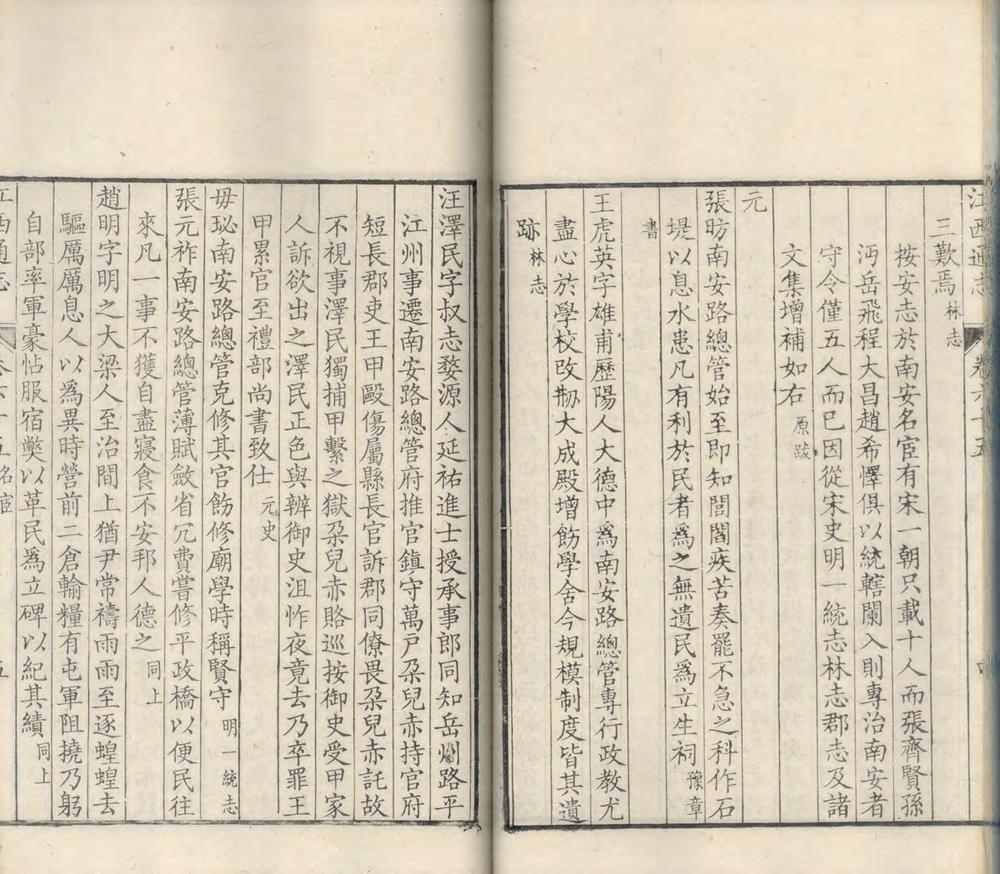 江西通志 卷六十五
三歎焉林志
按安志於南安名宦有宋一朝只載十人而張齊賢孫
沔岳飛程大昌趙希懌俱以統轄闌入則專治南安者
守令僅五人而已因從宋史明一統志林志郡志及諸
文集增補如右原跋
元
張昉南安路總管始至即知閭閻疾苦奏罷不急之科作石
堤以息水患凡有利於民者爲之無遺民爲立生祠豫章
書
王虎英字雄甫歷陽人大德中爲南安路總管專行政教尤
盡心於學校改刱大成殿增飭學舍今規模制度皆其遺
跡林志
汪澤民字叔志婺源人延祐進士授承事郎同知岳州路平
江州事遷南安路總管府推官鎮守萬戶朶兒赤持官府
短長郡吏王甲毆傷屬縣長官訴郡同僚畏朶兒赤託故
不視事澤民獨捕甲繫之獄朶兒赤賂巡按御史受甲家
人訴欲出之澤民正色與辨御史沮怍夜竟去乃卒罪王
甲累官至禮部尚書致仕元史
毋玜南安路總管克修其官飭修廟學時稱賢守明一統志
張元祚南安路總管薄賦斂省冗費嘗修平政橋以便民往
來凡一事不獲自盡寢食不安邦人德之同上
趙明字明之大梁人至治間上猶尹常禱雨雨至逐蝗蝗去
驅厲厲息人以爲異時營前二倉輸糧有屯軍阻撓乃躬
自部率軍豪怗服宿獘以革民爲立碑以紀其績同上
江西通志 卷六十五名宦 五